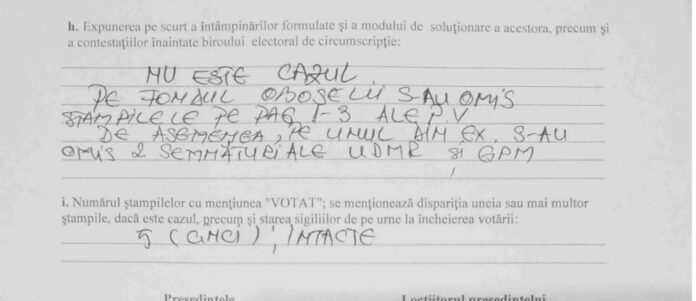 h. Expunerea pe scurt a întâmpinărilor formulate şi a modului de soluţionare a acestora, precum şi
a contestaţiilor înaintate biroului electoral de circumscripţie:
NU ESTE CAZUL
PE FONDUL OBOSELII S-AU OMIS
STAMPILELE PE PAG 1-3 ALE P.V
DE ASEMENEA, PE UNUL DIN EX. S-AU
OMIS 2 SEMNATURI ALE UDMR SI GPM
i. Numărul ştampilelor cu menţiunea "VOTAT"; se menţionează dispariţia uneia sau mai multor
ştampile, dacă este cazul, precum şi starea sigiliilor de pe urne la încheierea votării:
5 (CINCI); INTACTE
Preşedintele Locţiitorul preşedintelui